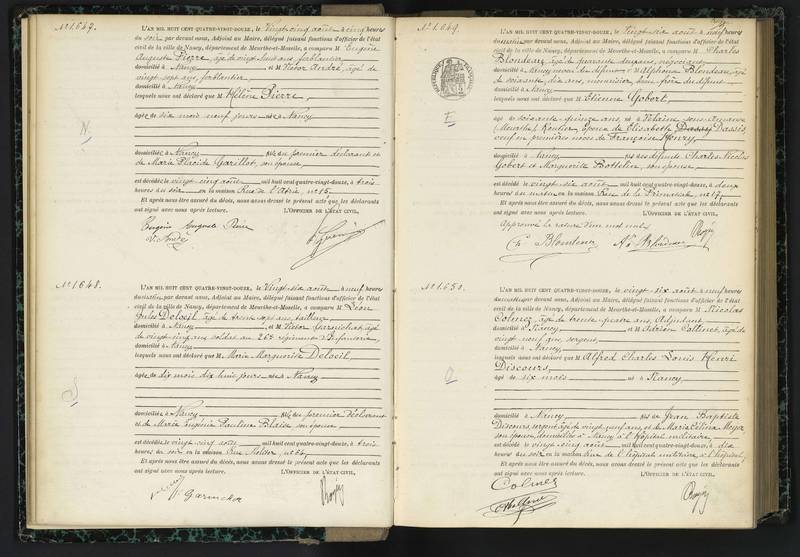 N° 1.647.
L'AN MIL HUIT CENT QUATRE-VINGT-DOUZE, le vingt-cinq août à cinq heures
du soir, par devant nous, Adjoint au Maire, délégué faisant fonctions d'officier de l'état
civil de la ville de Nancy, département de Meurthe-et-Moselle, a comparu M. Eugène
Auguste Pierre, âgé de vingt huit ans, ferblantier
domicilié à Nancy et M Victor André, âgé de
vingt sept ans, ferblantier
domicilié à Nancy
lesquels nous ont déclaré que M. Hélène Pierre,
âgée de six mois neuf jours née à Nancy
domiciliée à Nancy fille du premier déclarant et
de Marie Placide Garillot, son épouse
est décédée le vingt cinq août mil huit cent quatre-vingt-douze, à trois
heures du soir en la maison Rue de l'Abbé, n° 15.
Et après nous être assuré du décès, nous avons dressé le présent acte que les déclarants
ont signé avec nous après lecture. L'OFFICIER DE L'ÉTAT CIVIL,
Eugène Auguste Pierre
N
N° 1.648.
L'AN MIL HUIT CENT QUATRE-VINGT-DOUZE, le vingt-six août à neuf heures
du matin par devant nous, Adjoint au Maire, délégué faisant fonctions d'officier de l'état
civil de la ville de Nancy, département de Meurthe-et-Moselle, a comparu M. Léon
Jules Deloeil, âgé de trente sept ans, tailleur
domicilié à Nancy et M Victor âgé
de vingt cinq ans soldat au 26e régiment d'Infanterie,
domicilié à Nancy
lesquels nous ont déclaré que M. Marie Marguerite Deloeil
âgée de dix mois dix huit jours née à Nancy
domiciliée à Nancy fille du premier déclarant
et de Marie Eugénie Pauline son épouse
est décédée le vingt cinq août mil huit cent quatre-vingt-douze, à trois
heures du soir en la maison Rue Molitor, n° 64.
Et après nous être assuré du décès, nous avons dressé le présent acte que les déclarants
ont signé avec nous après lecture. L'OFFICIER DE L'ÉTAT CIVIL,
N° 1.649.
L'AN MIL HUIT CENT QUATRE-VINGT-DOUZE, le vingt-six août à neuf heures
du matin par devant nous, Adjoint au Maire, délégué faisant fonctions d'officier de l'état
civil de la ville de Nancy, département de Meurthe-et-Moselle, a comparu M. Charles
Blondeau, âgé de quarante ans, négociant
domicilié à Nancy neveu du défunt et M Alphonse Blondeau, âgé
de soixante dix ans, beau frère du défunt
domicilié à Nancy
lesquels nous ont déclaré que M Etienne Gobert,
âgé de soixante quinze ans, né à Velaine sous Amance
(Meurthe) Routier, époux de Elisabeth Dassis,
veuf en premières noces de Françoise Henry,
domicilié à Nancy fils des défunts Charles Nicolas
Gobert et Marguerite son épouse
est décédé le vingt-six août mil huit cent quatre-vingt-douze, à deux
heures du matin en la maison Rue de la Primatiale n° 17.
Et après nous être assuré du décès, nous avons dressé le présent acte que les déclarants
ont signé avec nous après lecture. L'OFFICIER DE L'ÉTAT CIVIL,
Approuvé la rature d'un mot nul.
E
N° 1.650.
L'AN MIL HUIT CENT QUATRE-VINGT-DOUZE, le vingt-six août à neuf heures
du matin par devant nous, Adjoint au Maire, délégué faisant fonctions d'officier de l'état
civil de la ville de Nancy, département de Meurthe-et-Moselle, a comparu M. Nicolas
Colinez, âgé de trente quatre ans, Adjudant
domicilié à Nancy et M Adrien Collinet, âgé de
vingt neuf ans, sergent
domicilié à Nancy
lesquels nous ont déclaré que M. Alfred Charles Louis Henri
Discours,
âgé de six mois né à Nancy
domicilié à Nancy fils de Jean Baptiste
Discours, sergent âgé de vingt neuf ans, et de Marie Célina Meyer
son épouse, domiciliés à Nancy à l'hôpital militaire
est décédé le vingt cinq août mil huit cent quatre-vingt-douze, à dix
heures du soir en la maison Rue de l'hôpital militaire à l'hôpital,
Et après nous être assuré du décès, nous avons dressé le présent acte que les déclarants
ont signé avec nous après lecture. L'OFFICIER DE L'ÉTAT CIVIL,
Colinez